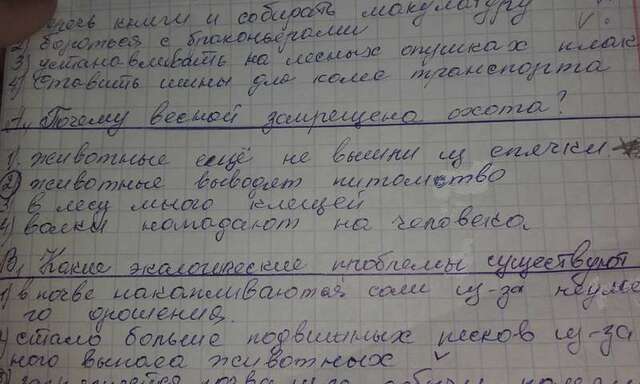 книги и собирать макулатуру
2) бороться с браконьерами
3) устанавливать на лесных опушках плак
4) ставить шины для колес транспорта
А, Почему весной запрещена охота?
1) животные ещё не вышли из спячки.
2) животные выводят питомство
3 в лесу много клещей
4) волки нападают на человека.
В, Какие экологические проблемы существуют
1) в почве накапливаются соли из-за неуме
го орошения.
стало больше подвижных песков из-за
ного выпаса животных